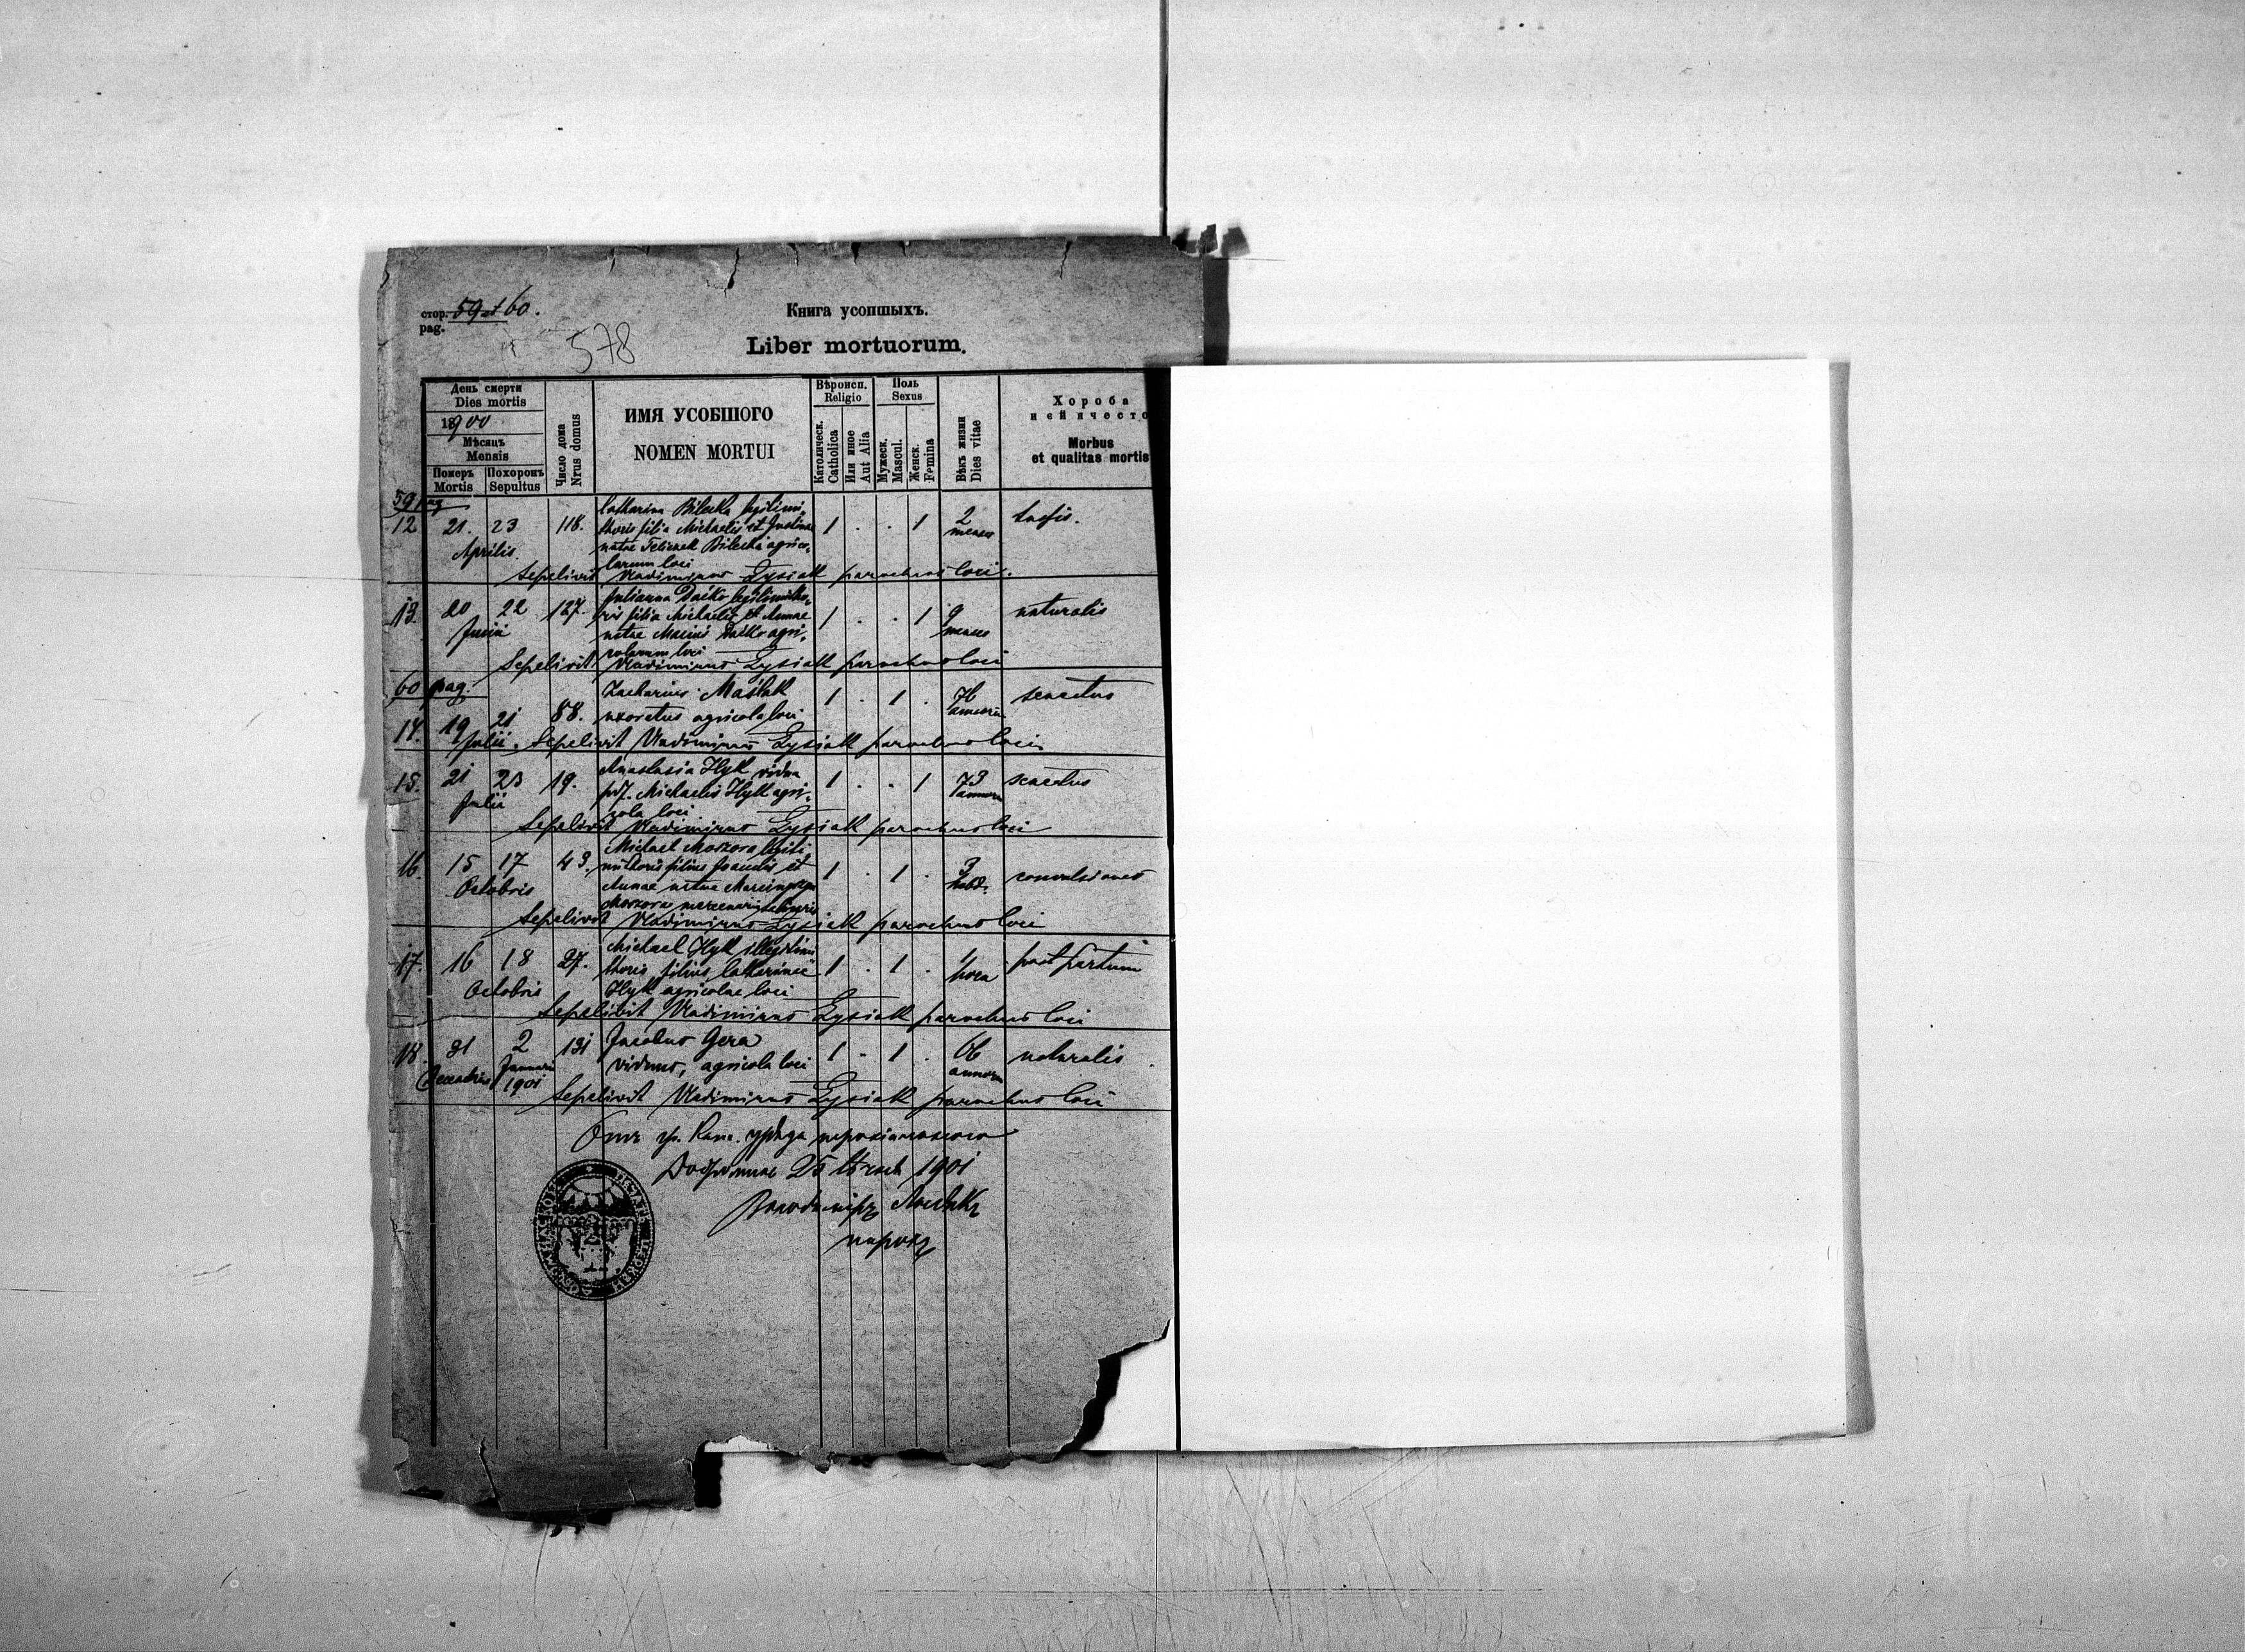 стор. 59 et 60.
pag.
578
Книга усопшыхъ.
Liber mortuorum.
День смерти
Dies mortis
1900
Мѣсяцъ
Mensis
Померъ
Mortis
Похоронъ
Sepultus
Число дома
Nrus domus
ИМЯ УСОБШОГО
NOMEN MORTUI
Вѣроисп.
Religio
Католическ.
Catholica
Или иное
Aut Alia
Поль
Sexus
Мужеск.
Mascul.
Женск.
Femina
Вѣкъ жизни
Dies vitae
Хороба
и єй ичесто
Morbus
et qualitas mortis
59 pag
12 21. 23 Aprilis. 118. 1 . . 1 2 menses tussis.
Catharina Bilecka legitimi
thori filia Michaelis et
natae Bilecki agrico-
larum loci
Sepelivit Vladimirus Łysiak parochus loci.
13. 20 22 Junii 127. 1 . . 1 9 menses naturalis
Julianna Daćko legitimi tho-
ri filia Michaelis et Annae
natae Daćko agri-
colarum loci
Sepelivit Vladimirus Łysiak parochus loci
60 pag.
14. 19 21 Julii. 88. 1 . 1 . 76 annorum senectus
Zacharius Maślak
uxoratus agricola loci
Sepelivit Vladimirus Łysiak parochus loci
15. 21 23 Julii 19. 1 . . 1 73 annorum senectus
Anastasia Hyk vidua
Michaelis Hyk agri-
cola loci
Sepelivit Vladimirus Łysiak parochus loci
16. 15 17 Octobris 43. 1 . 1 . 3 hebd. convulsiones
Michael legiti
mi thori filius Joannis et
Annae natae
Sepelivit Vladimirus Łysiak parochus loci
17. 16 18 Octobris 27. 1 . 1 . 1 hora post partum
Michael Hyk illegitimi
thori filius Catharinae
Hyk agricolae loci
Sepelivit Vladimirus Łysiak parochus loci
18. 31 Decembris 2 Januarii 1901 131 1 . 1 . 66 annorum naturalis
Jacobus Gera
viduus, agricola loci
Sepelivit Vladimirus Łysiak parochus loci
Отъ гр. кат. уряда
25 1901
Володимiръ Лысякъ
парохъ